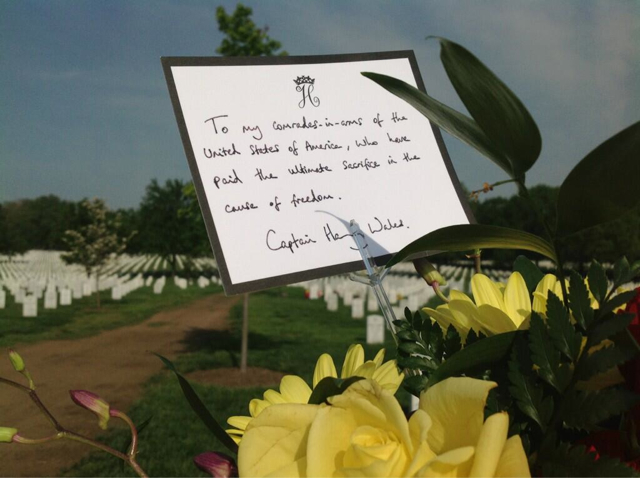 H
To my comrades-in-arms of the
United States of America, who have
paid the ultimate sacrifice in the
cause of freedom.
Captain Harry Wales.